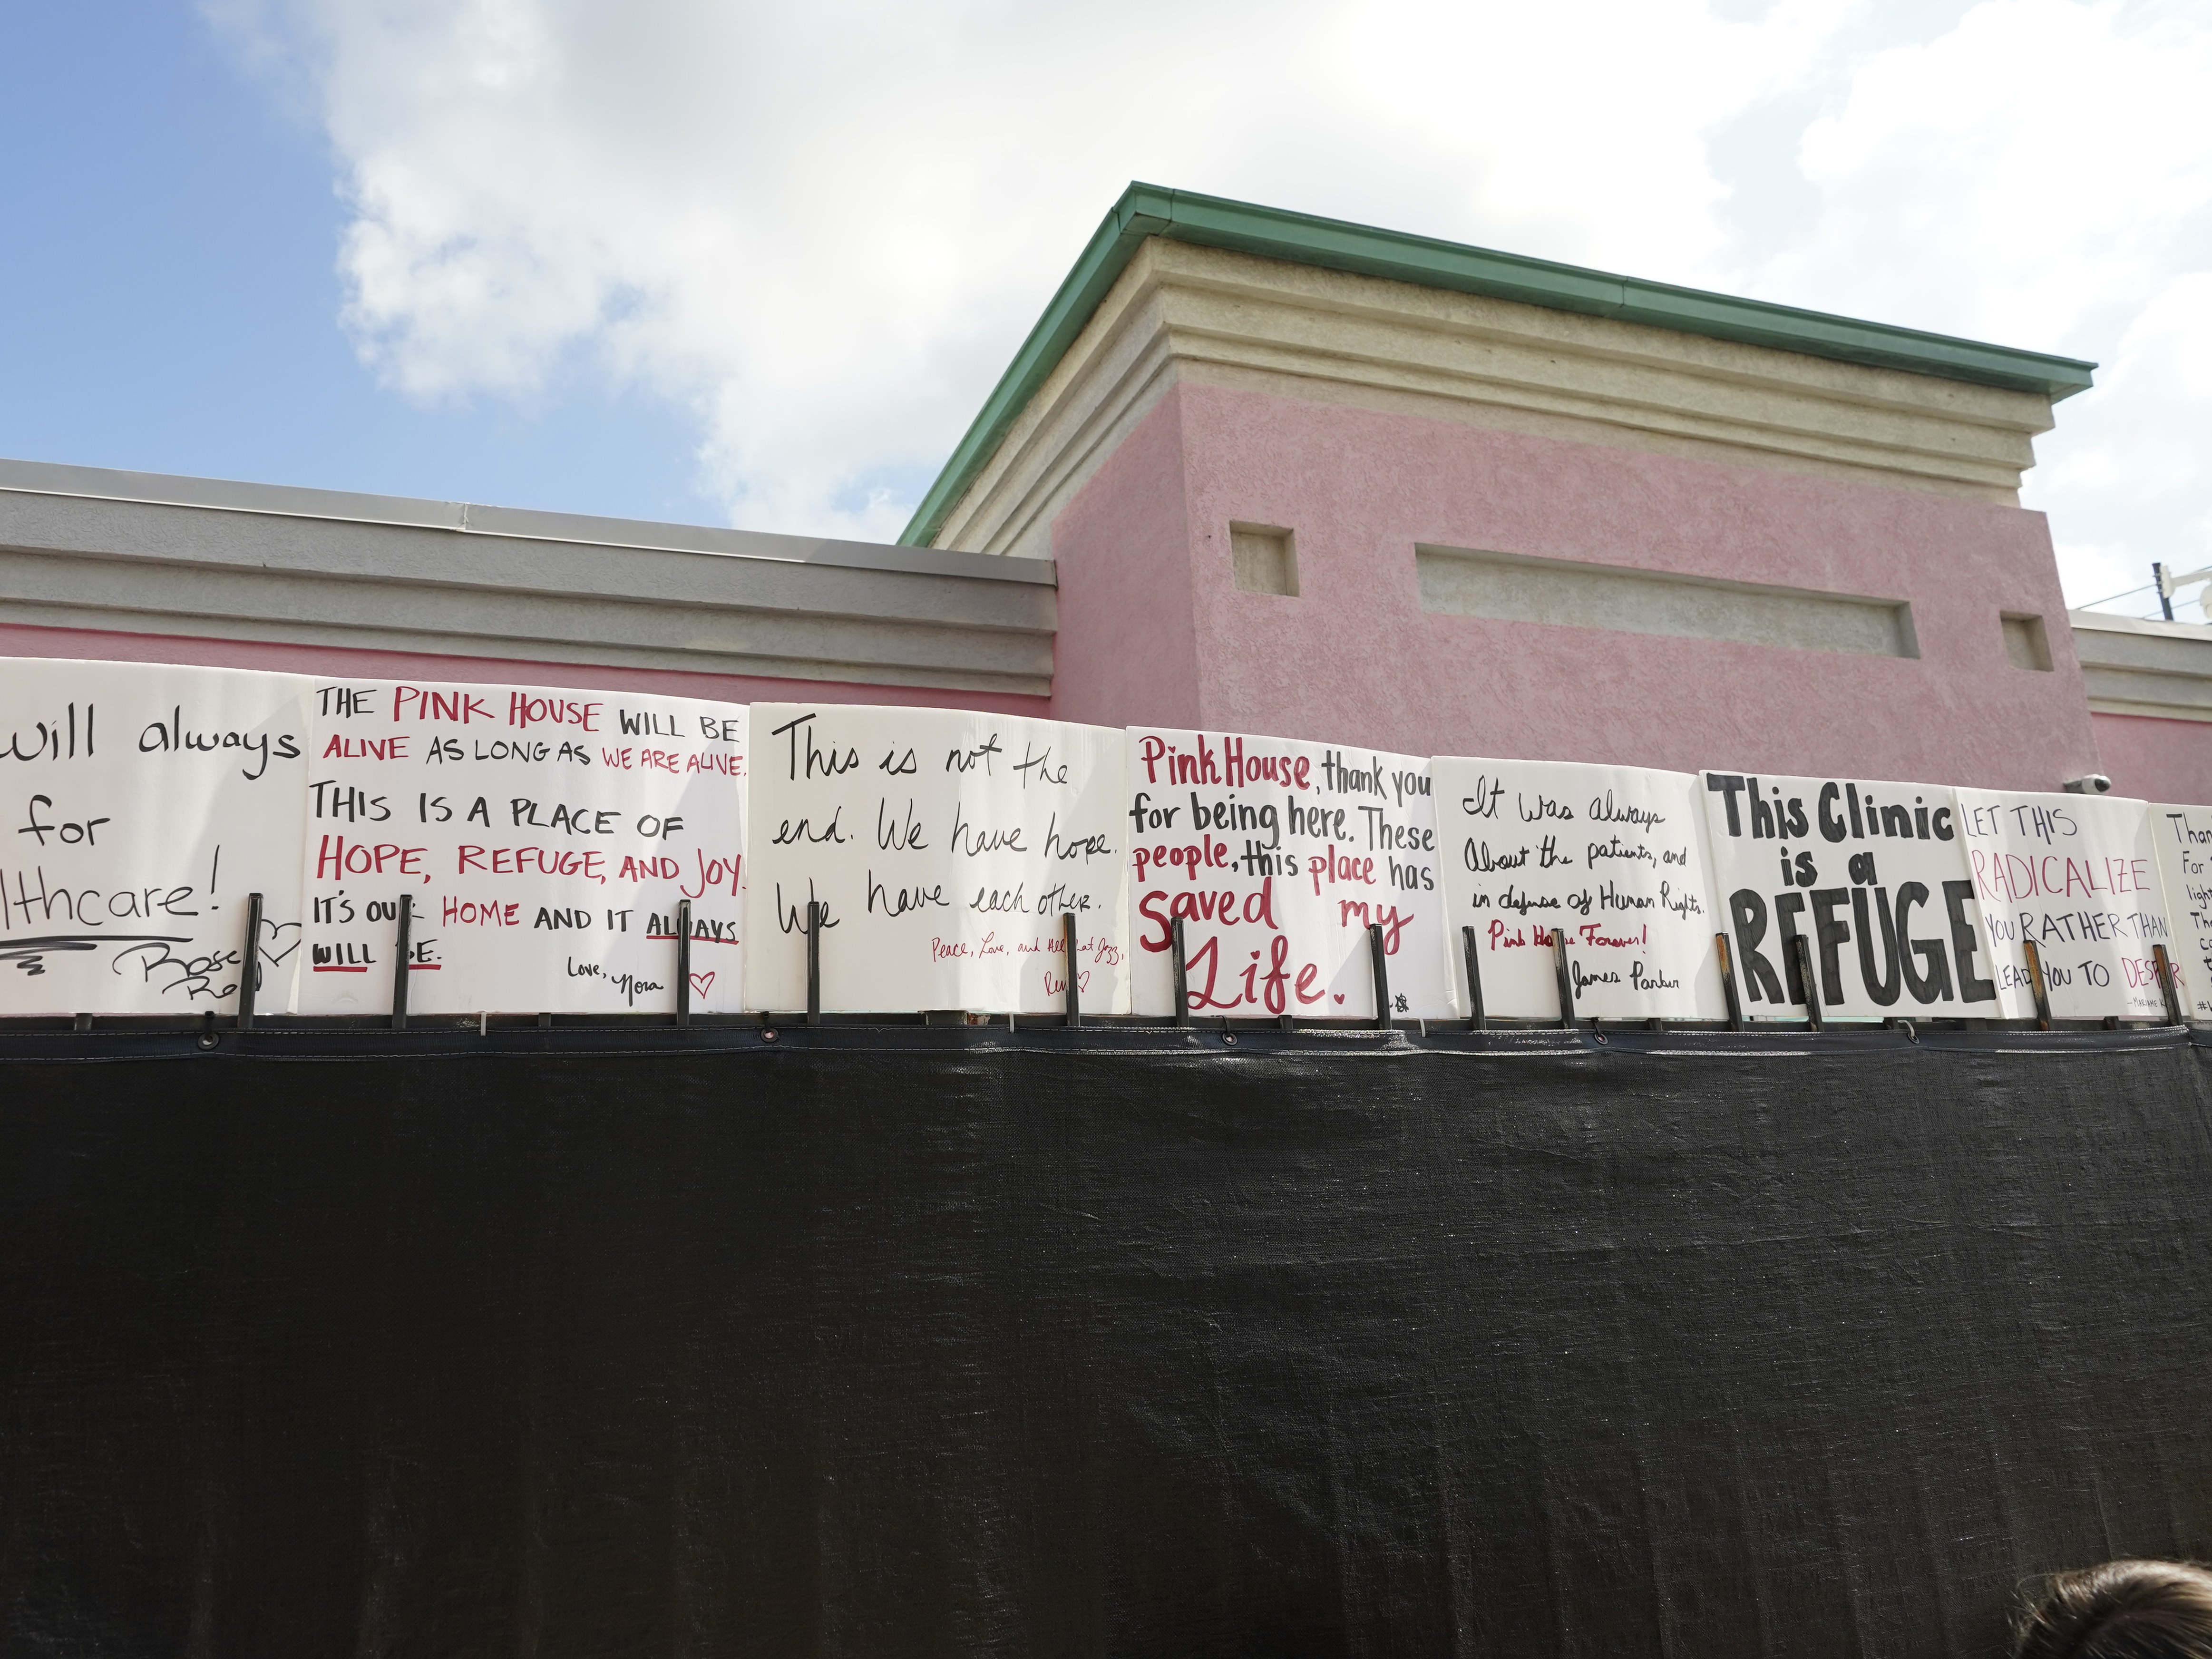 will always
for
lthcare!
Rose
THE PINK HOUSE WILL BE
ALIVE AS LONG AS WE ARE ALIVE.
THIS IS A PLACE OF
HOPE, REFUGE, AND JOY.
IT'S OUR HOME AND IT ALWAYS
WILL BE.
Love,
Nora
This is not the
end. We have hope.
We have each other.
Peace, Love, and All that Jazz,
Pink House, thank you
for being here. These
people, this place has
saved my
Life.
It was always
About the patients, and
in defense of Human Rights.
Pink House Forever!
James Parker
This Clinic
is a
REFUGE
LET THIS
RADICALIZE
YOU RATHER THAN
LEAD YOU TO DESPAIR
Than
For
light